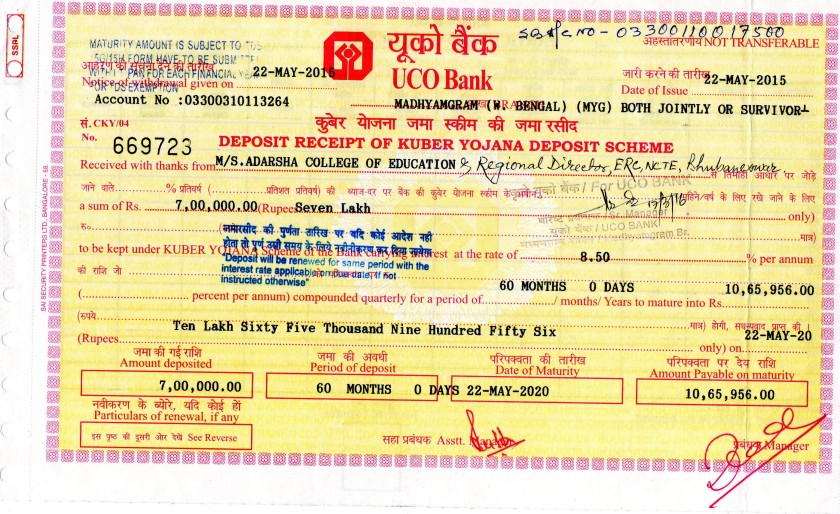 SSRL
SB A/C NO - 03300110017500
MATURITY AMOUNT IS SUBJECT TO TDS
यूको बैंक
अहस्तांतरणीय NOT TRANSFERABLE
WITH PAN FOR EACH FINANCIAL
FOR TDS EXEMPTION
Notice of withdrawal given on 22-MAY-2015
UCO Bank
जारी करने की तारीख
Date of Issue 22-MAY-2015
Account No :03300310113264
MADHYAMGRAM (W. BENGAL) (MYG) BOTH JOINTLY OR SURVIVOR
सं. CKY/04
कुबेर योजना जमा स्कीम की जमा रसीद
No. 669723
DEPOSIT RECEIPT OF KUBER YOJANA DEPOSIT SCHEME
Received with thanks from M/S.ADARSHA COLLEGE OF EDUCATION & Regional Director, ERC, NCTE, Bhubaneswar
जाने वाले % प्रतिवर्ष ( प्रतिशत प्रतिवर्ष) की ब्याज-दर पर बैंक की कुबेर योजना स्कीम के के लिए रखे जाने के लिए
For UCO BANK
a sum of Rs. 7,00,000.00 (Rupees Seven Lakh only)
Manager
यूको बैंक / UCO BANK
रु०
मात्र)
जमारसीद की पुर्णता तारिख पर यदि कोई आदेश नही
होता तो पूर्ण उसी समय के लिये नवीनीकरण कर दिया जायेगा
to be kept under KUBER YOJANA Scheme of the Bank carrying interest at the rate of 8.50 % per annum
"Deposit will be renewed for same period with the
interest rate applicable on due date, if not
instructed otherwise"
की राशि जो
60 MONTHS 0 DAYS 10,65,956.00
( percent per annum) compounded quarterly for a period of / months/ Years to mature into Rs.
(रुपये मात्र) होगी,
Ten Lakh Sixty Five Thousand Nine Hundred Fifty Six 22-MAY-20
(Rupees only) on
जमा की गई राशि जमा की अवधी परिपक्वता की तारीख परिपक्वता पर देय राशि
Amount deposited Period of deposit Date of Maturity Amount Payable on maturity
7,00,000.00 60 MONTHS 0 DAYS 22-MAY-2020 10,65,956.00
नवीकरण के ब्योरे, यदि कोई हों
Particulars of renewal, if any
इस पृष्ठ की दुसरी ओर देखें See Reverse
सहा प्रबंधक Asstt. Manager
प्रबंधक Manager
SAI SECURITY PRINTERS LTD. BANGALORE - 58.